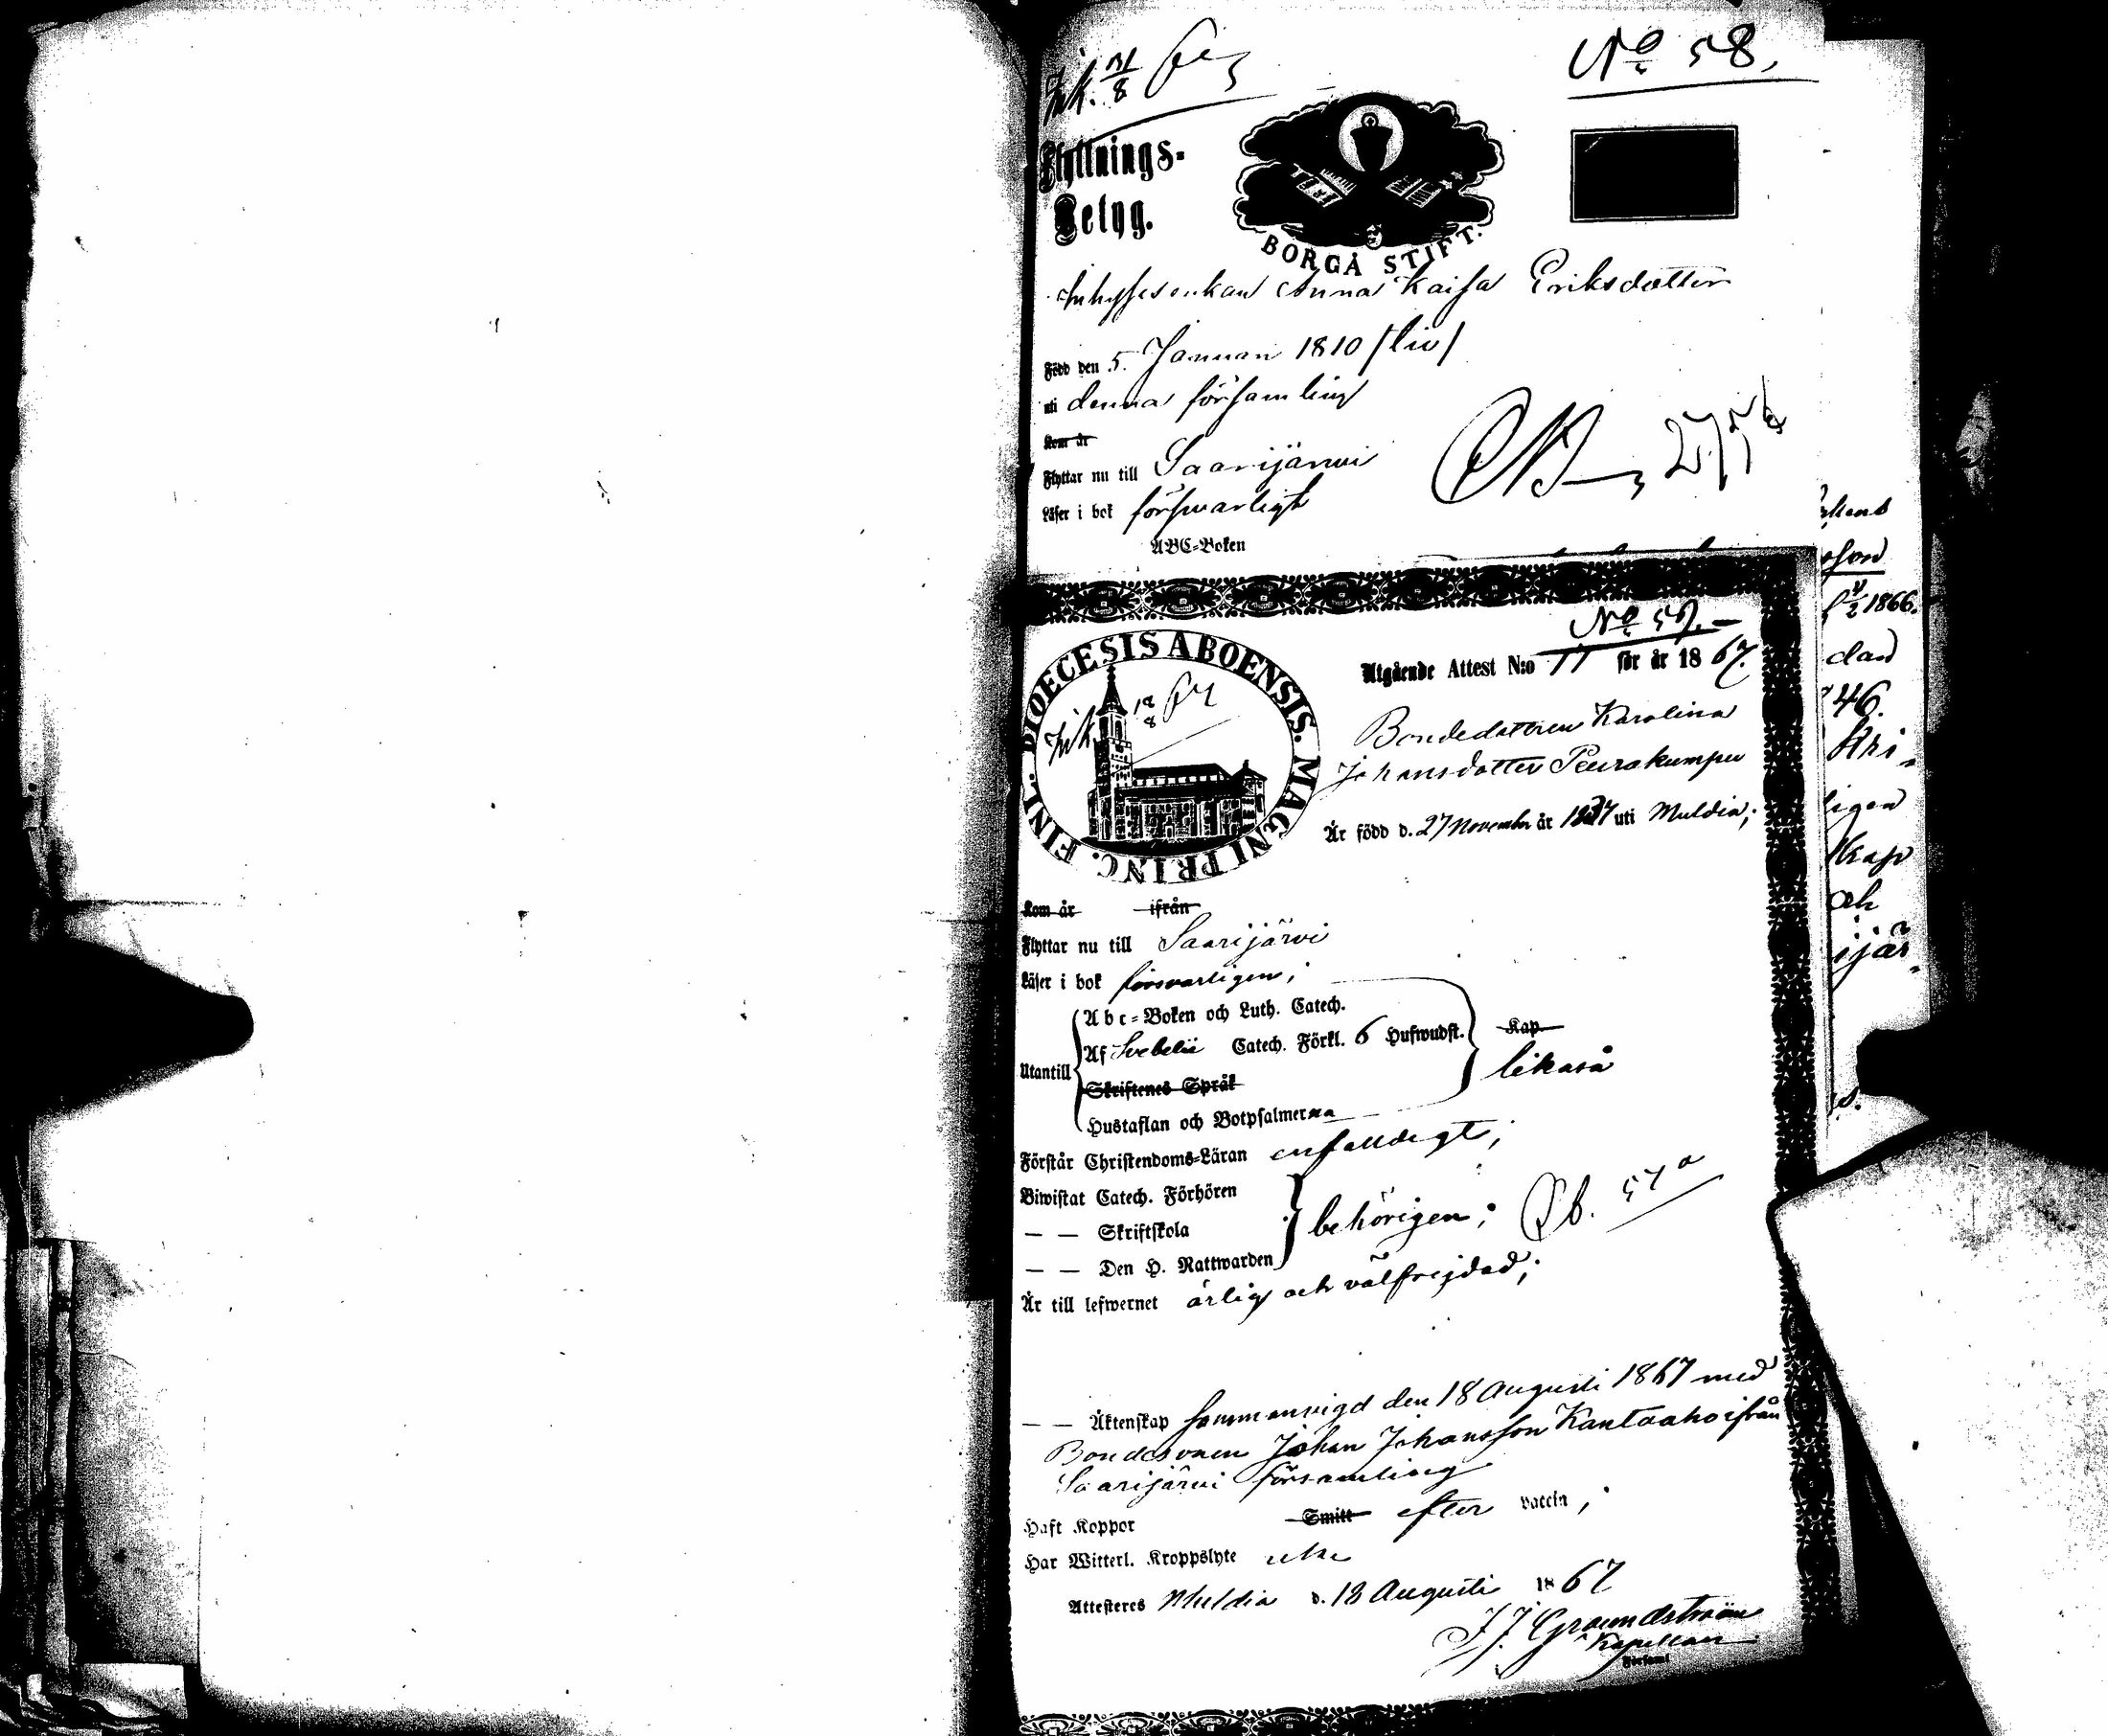 Ink. 31/8 67
No 58.
Flyttnings-
Betyg.
BORGÅ STIFT.
Inhysesenkan Anna Kaisa Eriksdotter
Född den 5 Januari 1810 /tio/
uti denna församling
Kom år
Flyttar nu till Saarijärvi
Läser i bok försvarligt
ABC-Boken
No 57.
DIOECESIS ABOENSIS. MAGNI PRINC. FINL.
Ink. 18/8 67
Utgående Attest N:o 17 för år 1867.
Bondedottren Karolina
Johansdotter Peurakumpu
Är född d. 27 November år 1837 uti Muldia;
Kom år ifrån
Flyttar nu till Saarijärvi
Läser i bok försvarligen;
Utantill
Abc-Boken och Luth. Catech.
Af Svebelii Catech. Förkl. 6 Hufwudst.
Skriftenes Språk
Hustaflan och Botpsalmerna
Kap
likaså
Förstår Christendoms-Läran enfalldigt;
Biwistat Catech. Förhören
— — Skriftskola
— — Den H. Nattwarden
behörigen;
57
Är till lefwernet ärlig och välfrejdad;
— — Äktenskap sammanvigd den 18 Augusti 1867 med
Bondesonen Johan Johansson Kantaaho ifrån
Saarijärvi församling
Haft Koppor Smitt efter vaccin;
Har Witterl. Kroppslyte icke
Attesteres Muldia d. 18 Augusti 1867
Kapellan
Församl
1866.
dan
46.
och